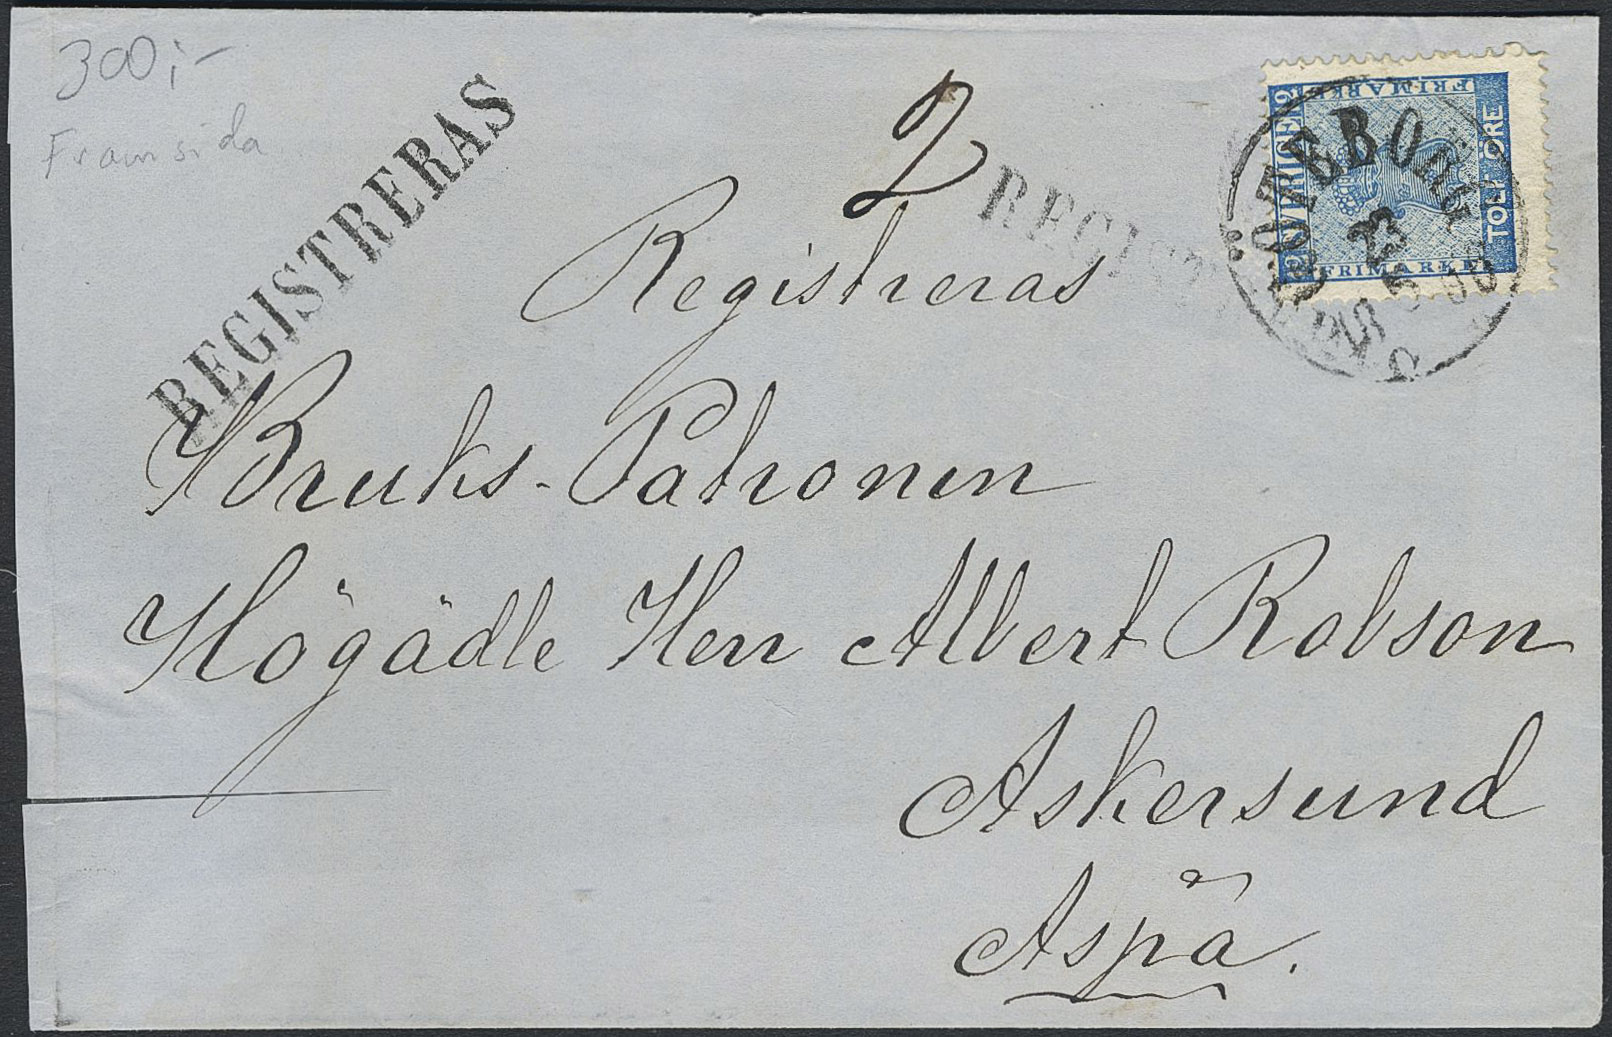 300:-
Framsida
REGISTRERAS
2
REGIST
SVERIGE
FRIMÄRKE
TOLF ÖRE
FRIMÄRKE
GÖTEBORG
23
5
Registreras
Bruks-Patronen
Högädle Herr Albert Robson
Askersund
Aspa.